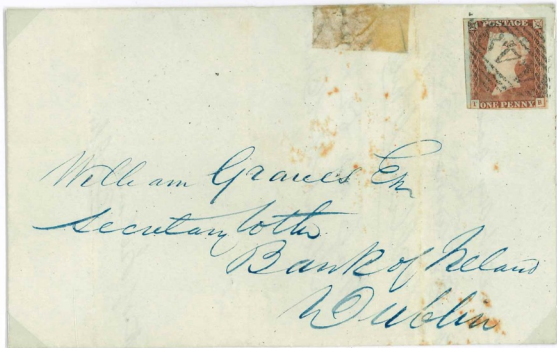 POSTAGE
ONE PENNY
William Graves Esq
Secretary to the
Bank of Ireland
Dublin